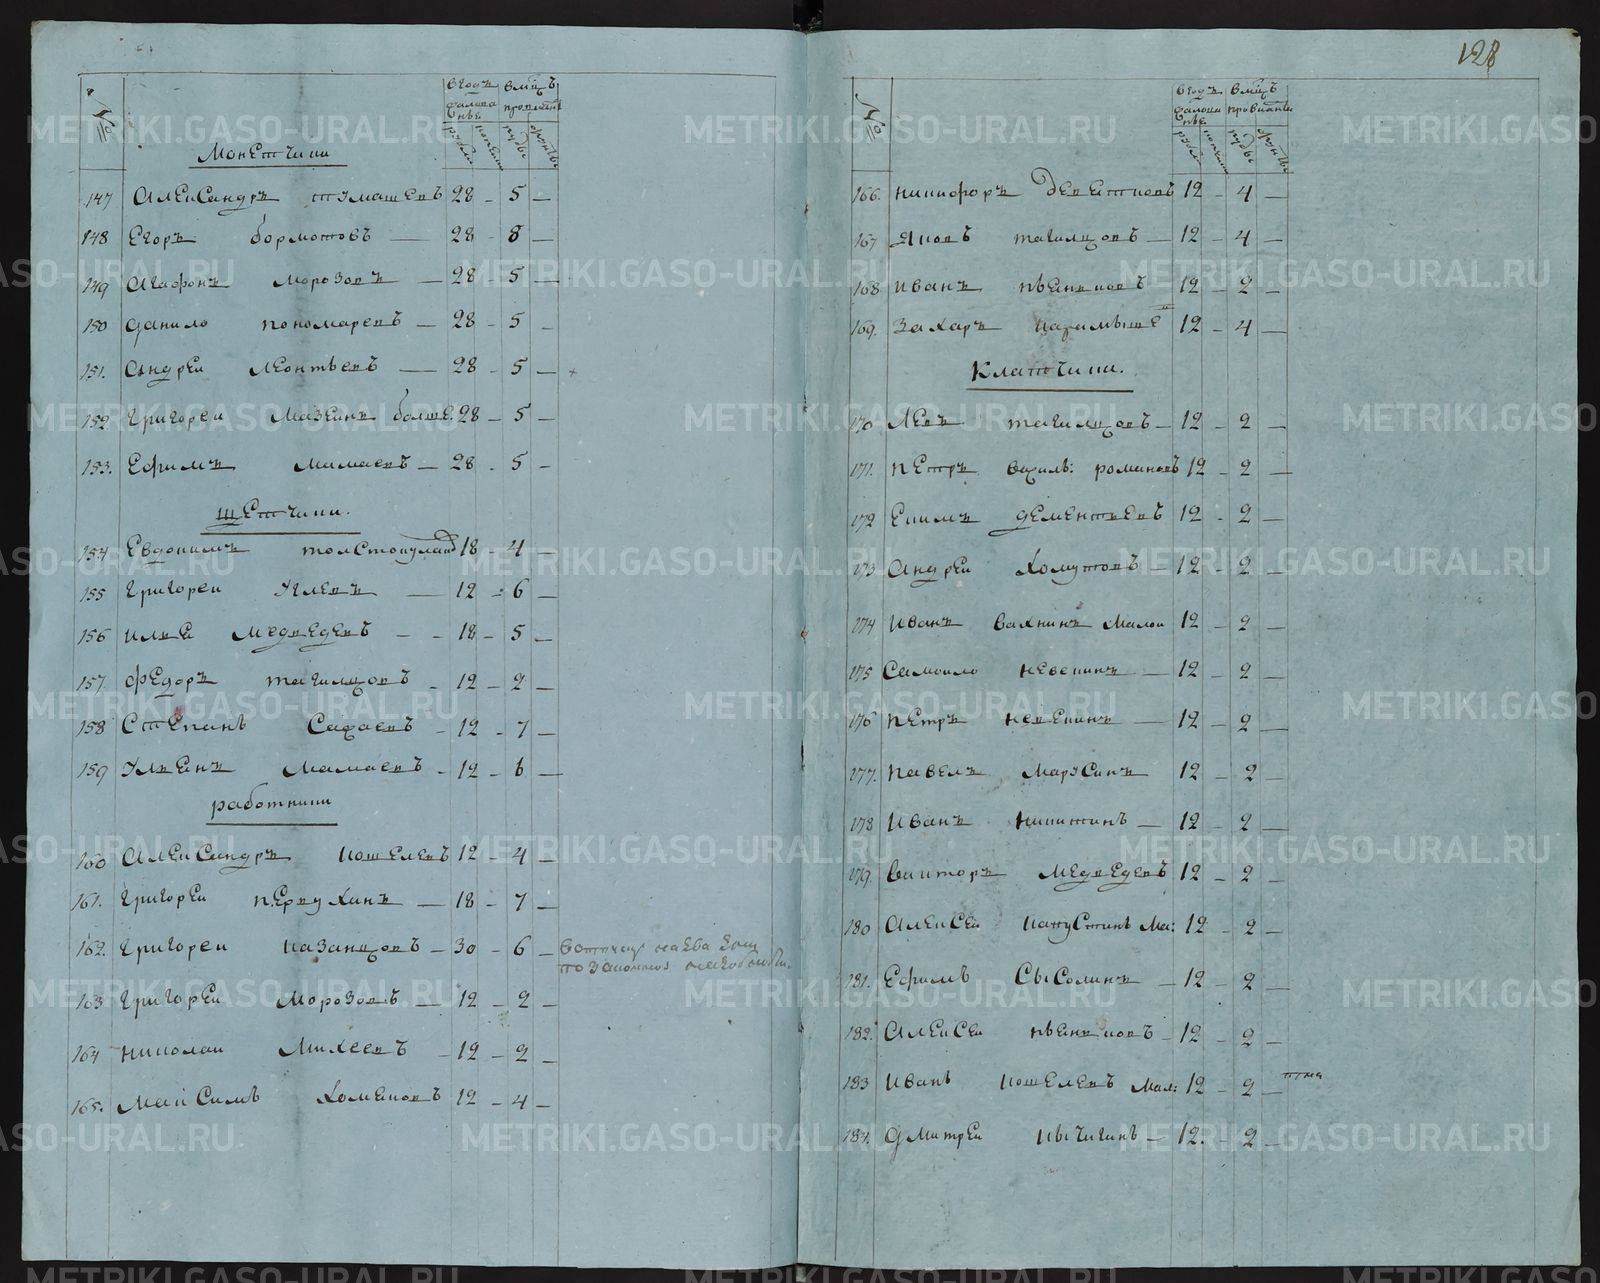 128
№
в годъ жалованье
в мцъ провианта
рубли
копейки
пуды
фунты
Монетчики
147 Александръ Тумашевъ 28 - 5 -
148 Егоръ Бормотовъ - 28 - 8 -
149 Агафонъ Морозовъ - 28 - 5 -
150 Данило Пономаревъ - 28 - 5 -
151. Андреи Леонтьевъ - 28 - 5 - +
152. Григореи Мазеинъ болше. 28 - 5 -
153. Ефимъ Мамаевъ - 28 - 5 -
Щетчики.
154 Евдокимъ 18 - 4 -
155 Григореи Углевъ - 12 - 6 -
156 Илья Медведевъ - - 18 - 5 -
157 Федоръ Тагилцовъ - 12 - 2 -
158 Степанъ Сараевъ - 12 - 7 -
159 Ульянъ Мамаевъ - 12 - 6 -
работники
160 Александръ Кошелевъ 12 - 4 -
161. Григореи Первухинъ - 18 - 7 -
162. Григореи Казанцовъ - 30 - 6 -
163 Григореи Морозовъ - 12 - 2 -
164 Николаи Михеевъ - 12 - 2 -
165. Максимъ Хомековъ 12 - 4 -
№
в годъ жалованье
в мцъ провианты
рубли
копейки
пуды
фунты
166. Никифоръ Девятковъ 12 - 4 -
167 Яковъ Тагилцовъ - 12 - 4 -
168 Иванъ Пьянковъ 12 - 2 -
169. Захаръ 12 - 4 -
Клатчики.
170 Левъ Тагилцовъ - 12 - 2 -
171. Петръ Василь: Романовъ 12 - 2 -
172 Екимъ Дементьевъ 12 - 2 -
173 Андреи Хомутовъ - 12 - 2 -
174 Иванъ Вахнинъ Малои 12 - 2 -
175 Самоило Невекинъ - 12 - 2 -
176 Петръ Невекинъ - 12 - 2 -
177. Павелъ Марусинъ 12 - 2 -
178 Иванъ Никитинъ - 12 - 2 -
179. Викторъ Медведевъ 12 - 2 -
180 Алексеи Капустинъ Ма: 12 - 2 -
181. Ефимъ Сысолинъ - 12 - 2 -
182. Алексеи Пьянковъ - 12 - 2 -
183 Иванъ Кошелевъ Мал: 12 - 2 -
184. Дмитреи Кычигинъ - 12. - 2 -